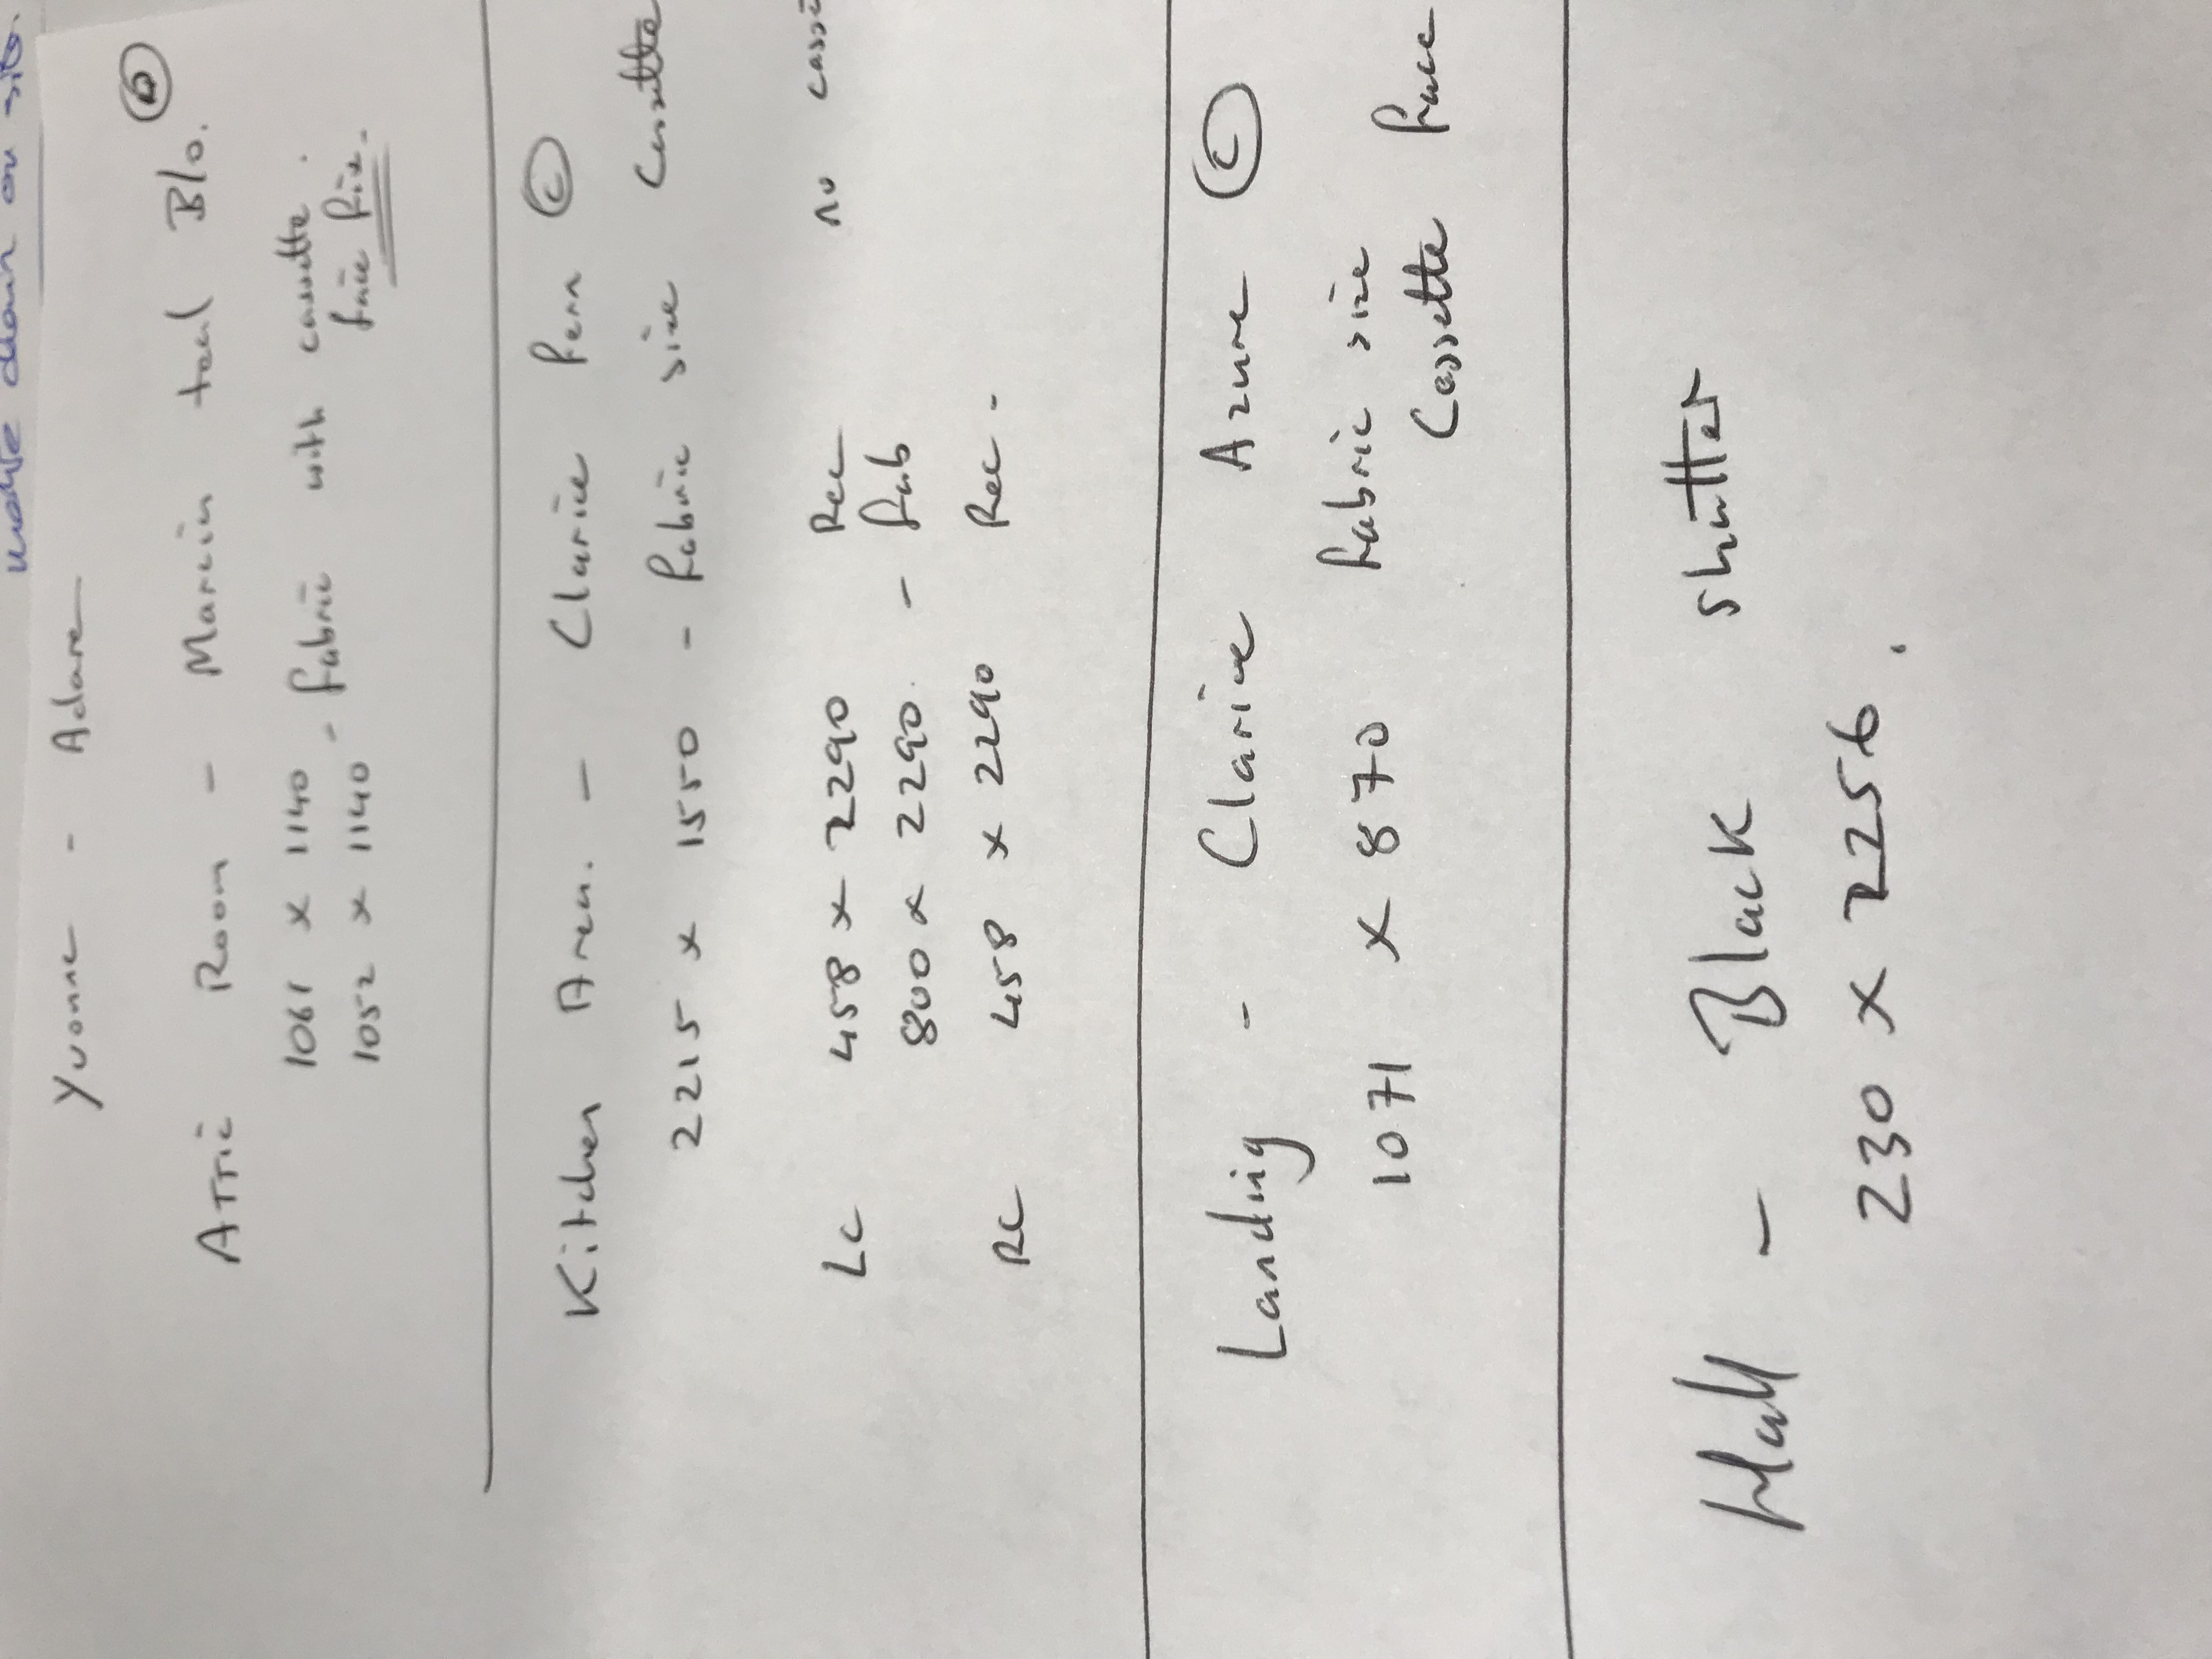 Yvonne - Adare
Attic Room - Marcin total B/o. (D)
1061 x 1140
1052 x 1140 - Fabric with cassette.
face fix.
Kitchen Area. - Clarice Fern (C)
2215 x 1550 - Fabric size Cassette
LC 458 x 2290 Rec no
800 x 2290. - Fab
RC 458 x 2290 Rec.
Landing - Clarice Azure (C)
1071 x 870 Fabric size
Cassette face
Hall - Black shutter
230 x 2256.